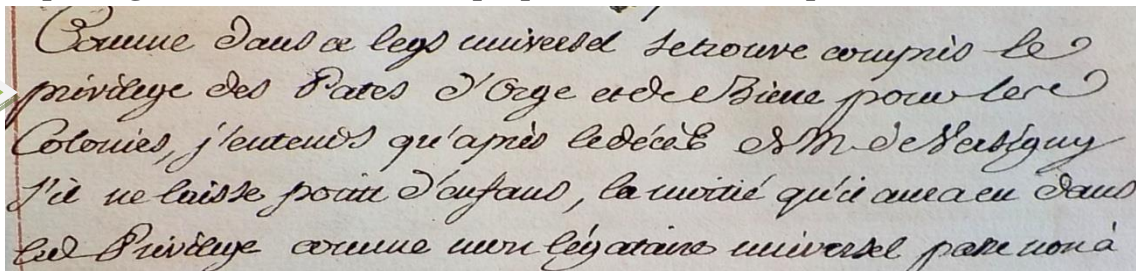 Comme dans ce legs universel se trouve compris le
privilege des Pates d'Orge et de Biere pour les
Colonies, j'entends qu'après le décès de M. de Versigny
s'il ne laisse point d'enfans, la moitié qu'il aura eu dans
led. Privilege comme mon légataire universel passe non à